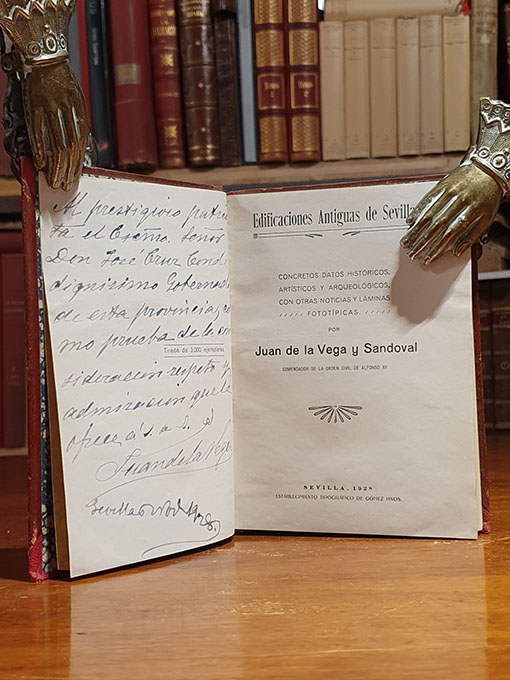 Al prestigioso patricio
ta el Excmo. Señor
Don José Cruz Conde
dignísimo Gobernador
de esta provincia, co
mo prueba de la con
Tirada de 3.000 ejemplares
sideracion respeto y
admiracion que le
ofrece a s. a. S.
Juan de la Vega
Sevilla 1928
Edificaciones Antiguas de Sevilla
CONCRETOS DATOS HISTÓRICOS,
ARTÍSTICOS Y ARQUEOLÓGICOS,
CON OTRAS NOTICIAS Y LÁMINAS
FOTOTÍPICAS.
POR
Juan de la Vega y Sandoval
COMENDADOR DE LA ORDEN CIVIL DE ALFONSO XII
SEVILLA, 1928
ESTABLECIMIENTO TIPOGRÁFICO DE GÓMEZ HNOS.